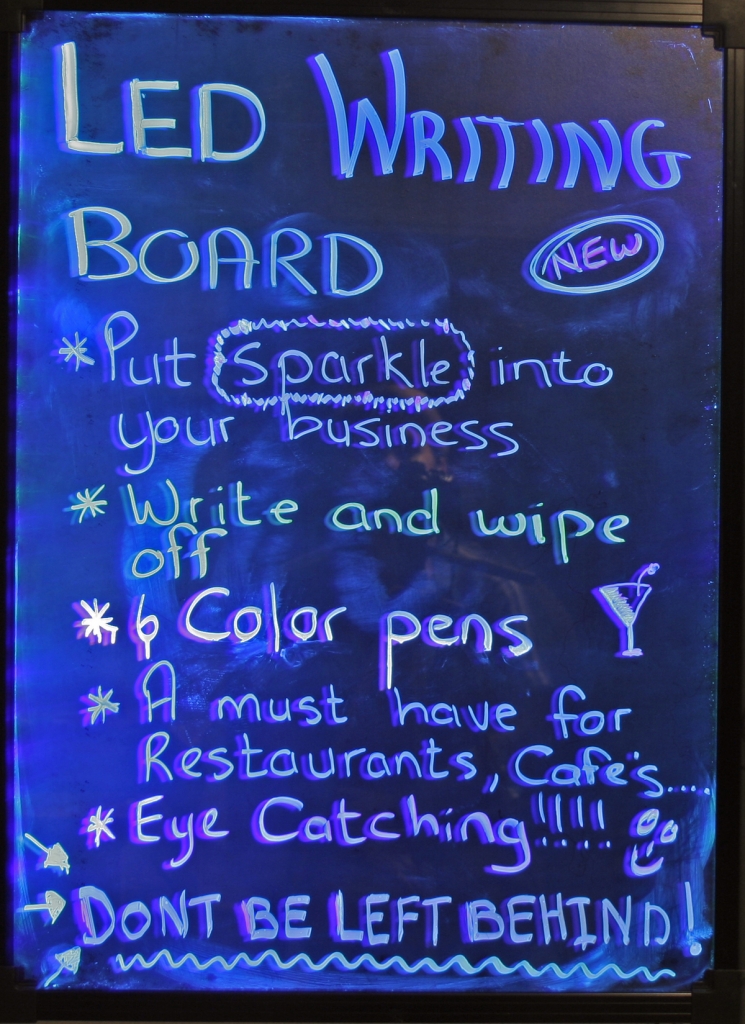 LED WRITING
BOARD NEW
* Put Sparkle into
your business
* Write and wipe
off
* 6 Color pens
* A must have for
Restaurants, Cafe's....
* Eye Catching!!!!!
DONT BE LEFT BEHIND!